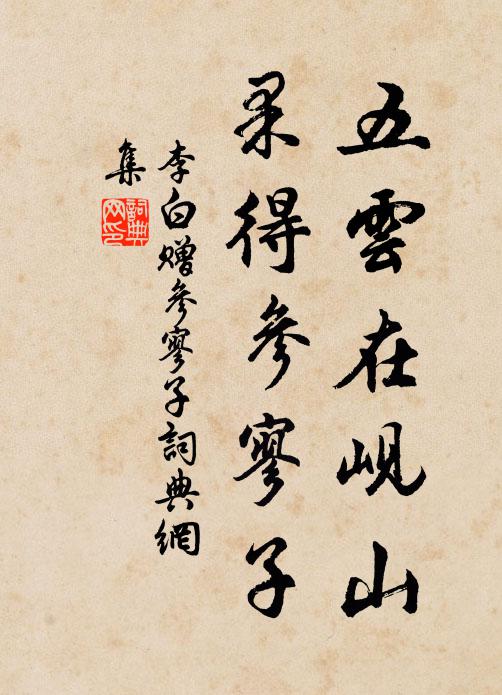 五雲在峴山
果得參寥子
李白贈參寥子詞典網
集
詞典網印